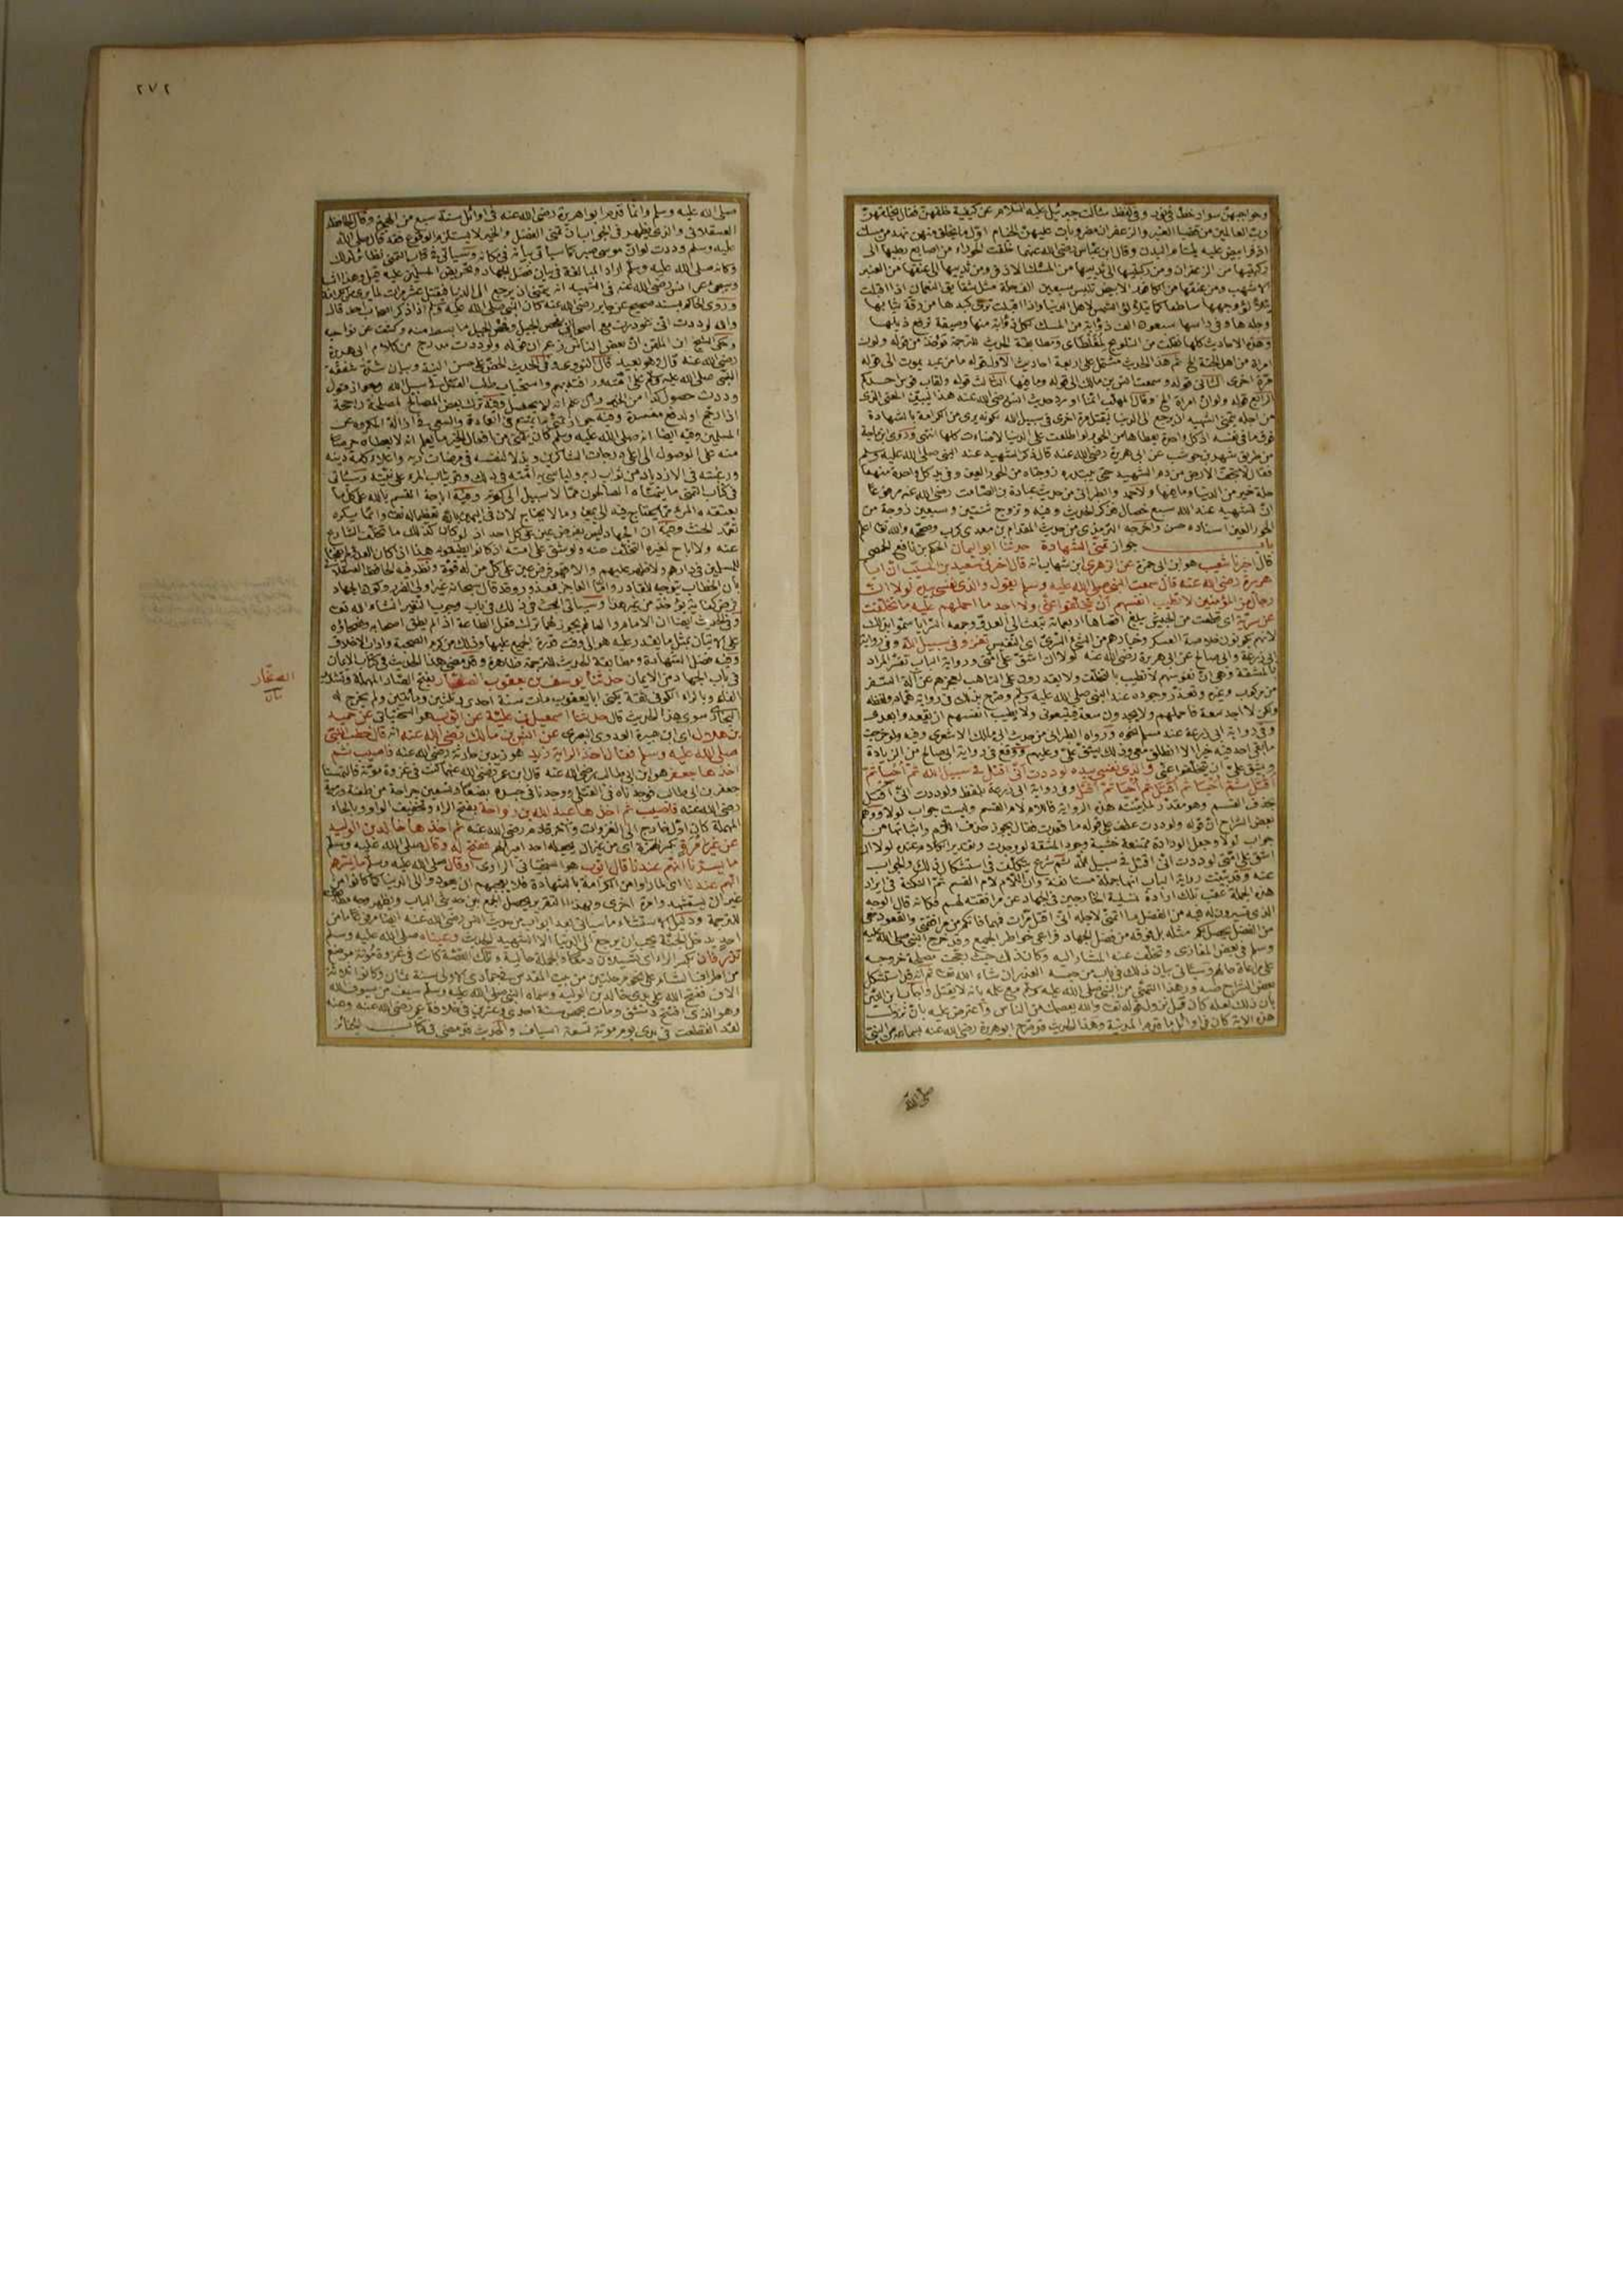 وحواجبهن سواد خط في نور وفي لفظ سألت جبرئيل عليه السلام عن كيفية خلقهن فقال يخلقهن
رب العالمين من قضبان العنبر والزعفران مضروبات عليهن الخيام اول ما يخلق منهن نهد من مسك
اذفر ابيض عليه يلتئم البدن وقال ابن عباس رضي الله عنهما خلقت الحوراء من اصابع رجليها الى
ركبتيها من الزعفران ومن ركبتيها الى ثدييها من المسك الاذفر ومن ثدييها الى عنقها من العنبر
الاشهب ومن عنقها من الكافور الابيض تلبس سبعين الف حلة مثل شقايق النعمان اذا اقبلت
يتلألؤ وجهها ساطعا كما يتلألؤ الشمس لاهل الدنيا واذا اقبلت ترى كبدها من رقة ثيابها
وجلدها وفي راسها سبعون الف ذؤابة من المسك لكل ذؤابة منها وصيفة ترفع ذيلها
وهذه الاحاديث كلها نقلت من التلويح لمغلطاى ومطابقة الحديث للترجمة تؤخذ من قوله ولو ان
امرأة من اهل الجنة الخ ثم هذا الحديث مشتمل على اربعة احاديث الاول قوله ما من عبد يموت الى قوله
مرة اخرى الثاني قوله وسمعت انس بن مالك الى قوله وما فيها الثالث قوله ولقاب قوس احدكم
الرابع قوله ولو ان امرأة الخ وقال المهلب انما اورد حديث انس رضي الله عنه هذا ليبين المعنى الذي
من اجله يتمنى الشهيد ان يرجع الى الدنيا ليقتل مرة اخرى في سبيل الله لكونه يرى من الكرامة بالشهادة
فوق ما في نفسه اذ كل واحدة يعطاها من الحور لو اطلعت على الدنيا لاضاءت كلها انتهى وروى ابن ماجة
من طريق شهر بن حوشب عن ابي هريرة رضي الله عنه قال ذكر الشهيد عند النبي صلى الله عليه وسلم
فقال لا تجف الارض من دم الشهيد حتى يبتدره زوجتاه من الحور العين وفي يد كل واحدة منهما
حلة خير من الدنيا وما فيها ولاحمد والطبراني من حديث عبادة بن الصامت رضي الله عنه مرفوعا
ان للشهيد عند الله سبع خصال فذكر الحديث وفيه وتزوج ثنتين وسبعين زوجة من
الحور العين اسناده حسن واخرجه الترمذي من حديث المقدام بن معدي كرب وصححه والله تعالى اعلم
باب جواز تمني الشهادة حدثنا ابو اليمان الحكم بن نافع الحمصي
قال اخبرنا شعيب هو ابن ابي حمزة عن الزهري ابن شهاب انه قال اخبرني سعيد بن المسيب ان ابا
هريرة رضي الله عنه قال سمعت النبي صلى الله عليه وسلم يقول والذي نفسي بيده لولا ان
رجالا من المؤمنين لا تطيب انفسهم ان يتخلفوا عني ولا اجد ما احملهم عليه ما تخلفت
عن سرية اى قطعة من الجيش يبلغ اقصاها اربعمائة تبعث الى العدو وجمعه السرايا سموا بذلك
لانهم يكونون خلاصة العسكر وخيارهم من الشئ السرى اى النفيس تغزو في سبيل الله وفي رواية
ابي زرعة وابي صالح عن ابي هريرة رضي الله عنه لولا ان اشق على امتي ورواية الباب تفسر المراد
بالمشقة وهي ان نفوسهم لا تطيب بالتخلف ولا يقدرون على التاهب لعجزهم عن آلة السفر
من مركوب وغيره وتعذر وجوده عند النبي صلى الله عليه وسلم وصرح بذلك في رواية همام ولفظه
ولكن لا اجد سعة فاحملهم ولا يجدون سعة فيتبعوني ولا يطيب انفسهم ان يقعدوا بعدى
وفي رواية ابي زرعة عند مسلم نحوه ورواه الطبراني من حديث ابي مالك الاشعري وفيه ولو خرجت
ما بقي احد فيه خير الا انطلق معي وذلك يشق علي وعليهم ووقع في رواية ابي صالح من الزيادة
ويشق علي ان يتخلفوا عني والذي نفسي بيده لوددت اني اقتل في سبيل الله ثم أحيا ثم
اقتل ثم أحيا ثم اقتل ثم أحيا ثم اقتل وفي رواية ابي زرعة بلفظ ولوددت اني اقتل
بحذف القسم وهو مقدر لما بينته هذه الرواية فاللام لام القسم وليست جواب لولا ووهم
بعض الشراح ان قوله ولوددت عطف على قوله ما قعدت فقال يجوز حذف اللام واثباتها من
جواب لولا وجعل الودادة ممتنعة خشية وجود المشقة لو وجدت وتقدير الكلام عنده لولا ان
اشق على امتي لوددت اني اقتل في سبيل الله ثم شرع يتكلف في استشكال ذلك والجواب
عنه وقد بينت رواية الباب انها جملة مستانفة وان اللام لام القسم ثم النكتة في ايراد
هذه الجملة عقب تلك ارادة تسلية الخارجين في الجهاد عن مرافقته لهم فكانه قال الوجه
الذي تسيرون له فيه من الفضل ما اتمنى لاجله اني اقتل مرات فمهما فاتكم من مرافقتي والقعود معي
من الفضل يحصل لكم مثله بل فوقه من فضل الجهاد فراعى خواطر الجميع وقد خرج النبي صلى الله عليه
وسلم في بعض المغازى وتخلف عنه المشار اليه وكان ذلك حيث رجحت مصلحة خروجه
على مراعاة حالهم وسيأتي بيان ذلك في باب من حبسه العذر ان شاء الله تعالى ثم انه قد استشكل
بعض الشراح صدور هذا التمني من النبي صلى الله عليه وسلم مع علمه بانه لا يقتل واجاب ابن التين
بان ذلك لعله كان قبل نزول قوله تعالى والله يعصمك من الناس واعترض عليه بان نزول
هذه الاية كان في اوائل ما قدم المدينة وهذا الحديث قد صرح ابو هريرة رضي الله عنه بسماعه من النبي
صلى الله
٢٧٢
صلى الله عليه وسلم وانما قدم ابو هريرة رضي الله عنه في اوائل سنة سبع من الهجرة وقال الحافظ
العسقلاني والذي يظهر في الجواب ان تمني الفضل والخير لا يستلزم الوقوع فقد قال صلى الله
عليه وسلم وددت لو ان موسى صبر كما سيأتي بيانه في مكانه وسيأتي في كتاب التمني نظائر لذلك
وكانه صلى الله عليه وسلم اراد المبالغة في بيان فضل الجهاد وتحريض المسلمين عليه
وسيجئ عن انس رضي الله عنه في الشهيد انه يتمنى ان يرجع الى الدنيا فيقتل عشر مرات لما يرى من الكرامة
وروى الحاكم بسند صحيح عن جابر رضي الله عنه كان النبي صلى الله عليه وسلم اذا ذكر اصحاب احد قال
والله لوددت اني غودرت مع اصحابي بفحص الجبل وفحص الجبل ما بسط منه وكشف عن نواحيه
وحكى الشيخ ابن الملقن ان بعض الناس زعم ان قوله ولوددت مدرج من كلام ابي هريرة
رضي الله عنه قال وهو بعيد قال النووي وفي الحديث الحض على حسن النية وبيان شدة شفقة
النبي صلى الله عليه وسلم على امته ورأفته بهم واستحباب طلب القتل في سبيل الله وجواز قول
وددت حصول كذا من الخير وان علم انه لا يحصل وفيه ترك بعض المصالح لمصلحة راجحة
او ارجح او لدفع مفسدة وفيه جواز تمني ما يمتنع في العادة والسعي في ازالة المكروه عن
المسلمين وفيه ايضا انه صلى الله عليه وسلم كان يتمنى من افعال الخير ما يعلم انه لا يعطاه حرصا
منه على الوصول الى اعلى درجات الشاكرين وبذلا لنفسه في مرضات ربه واعلاء كلمة دينه
ورغبته في الازدياد من ثواب ربه وليتاسى به امته في ذلك وقد يثاب المرء على نيته وسيأتي
في كتاب التمني ما يتمناه الصالحون مما لا سبيل الى كونه وفيه اباحة القسم بالله على كل ما
يعتقده المرء مما يحتاج فيه الى يمين وما لا يحتاج لان في اليمين بالله تعظيما له تعالى وانما يكره
تعمد الحنث وفيه ان الجهاد ليس بفرض عين على كل احد اذ لو كان كذلك ما تخلف الشارع
عنه ولا اباح لغيره التخلف عنه ولو شق على امته اذا كانوا يطيقونه هذا اذا كان العدو لم يفجأ
المسلمين في دارهم ولا ظهر عليهم والا فهو فرض عين على كل من له قوة ونظر فيه الحافظ العسقلاني
بان الخطاب يتوجه للقادر واما العاجز فمعذور وقد قال سبحانه غير اولي الضرر وكون الجهاد
فرض كفاية يؤخذ من غير هذا وسيأتي البحث في ذلك في باب وجوب النفير ان شاء الله تعالى
وفي الحديث ايضا ان الامام والعالم يجوز لهما ترك فعل الطاعة اذا لم يطق اصحابه ونصحاؤه
على الاتيان بمثل ما يقدر عليه هو الى وقت قدرة الجميع عليها وذلك من كرم الصحبة واداب الاخلاق
وفيه فضل الشهادة ومطابقة الحديث للترجمة ظاهرة وقد مضى هذا الحديث في كتاب الايمان
في باب الجهاد من الايمان حدثنا يوسف بن يعقوب الصفار بفتح الصاد المهملة وتشديد
الفاء وبالراء الكوفي ثقة يكنى ابا يعقوب مات سنة احدى وثلثين ومأتين ولم يخرج له
البخاري سوى هذا الحديث قال حدثنا اسمعيل بن علية عن ايوب هو السختياني عن حميد
بن هلال اى ابن هبيرة العدوى البصري عن انس بن مالك رضي الله عنه انه قال خطب النبي
صلى الله عليه وسلم فقال اخذ الراية زيد هو زيد بن حارثة رضي الله عنه فاصيب ثم
اخذها جعفر هو ابن ابي طالب رضي الله عنه قال ابن عمر رضي الله عنهما كنت في غزوة موتة فالتمسنا
جعفر بن ابي طالب فوجدناه في القتلى ووجدنا في جسده بضعا وتسعين جراحة من طعنة ورمية
رضي الله عنه فاصيب ثم اخذها عبد الله بن رواحة بفتح الراء وتخفيف الواو وبالحاء
المهملة كان اول خارج الى الغزوات وآخر قادم رضي الله عنه ثم اخذها خالد بن الوليد
عن غير إمرة بكسر الهمزة اى من غير ان يجعله احد اميرا لهم ففتح له وقال صلى الله عليه وسلم
ما يسرنا انهم عندنا قال ايوب هو السختياني الراوي او قال صلى الله عليه وسلم ما يسرهم
انهم عندنا اى لما راوا من الكرامة بالشهادة فلا يعجبهم ان يعودوا الى الدنيا كما كانوا من
غير ان يستشهدوا مرة اخرى وبهذا التقرير يحصل الجمع بين حديثي الباب ويظهر وجه مطابقته
للترجمة ودليل الاستثناء ما سيأتي بعد ابواب من حديث انس رضي الله عنه ايضا مرفوعا ما من
احد يدخل الجنة يحب ان يرجع الى الدنيا الا الشهيد الحديث وعيناه صلى الله عليه وسلم
تذرفان بكسر الراء اى تسيلان دمعا والجملة حالية وتلك القصة كانت في غزوة مؤتة موضع
من اطراف الشام على نحو مرحلتين من بيت المقدس في جمادى الاولى سنة ثمان وكانوا ثلاثة
الاف ففتح الله على يدي خالد بن الوليد وسماه النبي صلى الله عليه وسلم سيف من سيوف الله
وهو الذي افتتح دمشق ومات بحمص سنة احدى وعشرين في خلافة عمر رضي الله عنه وعنه
لقد انقطعت في يدي يوم موتة تسعة اسياف والحديث قد مضى في كتاب الجنائز
الصفار